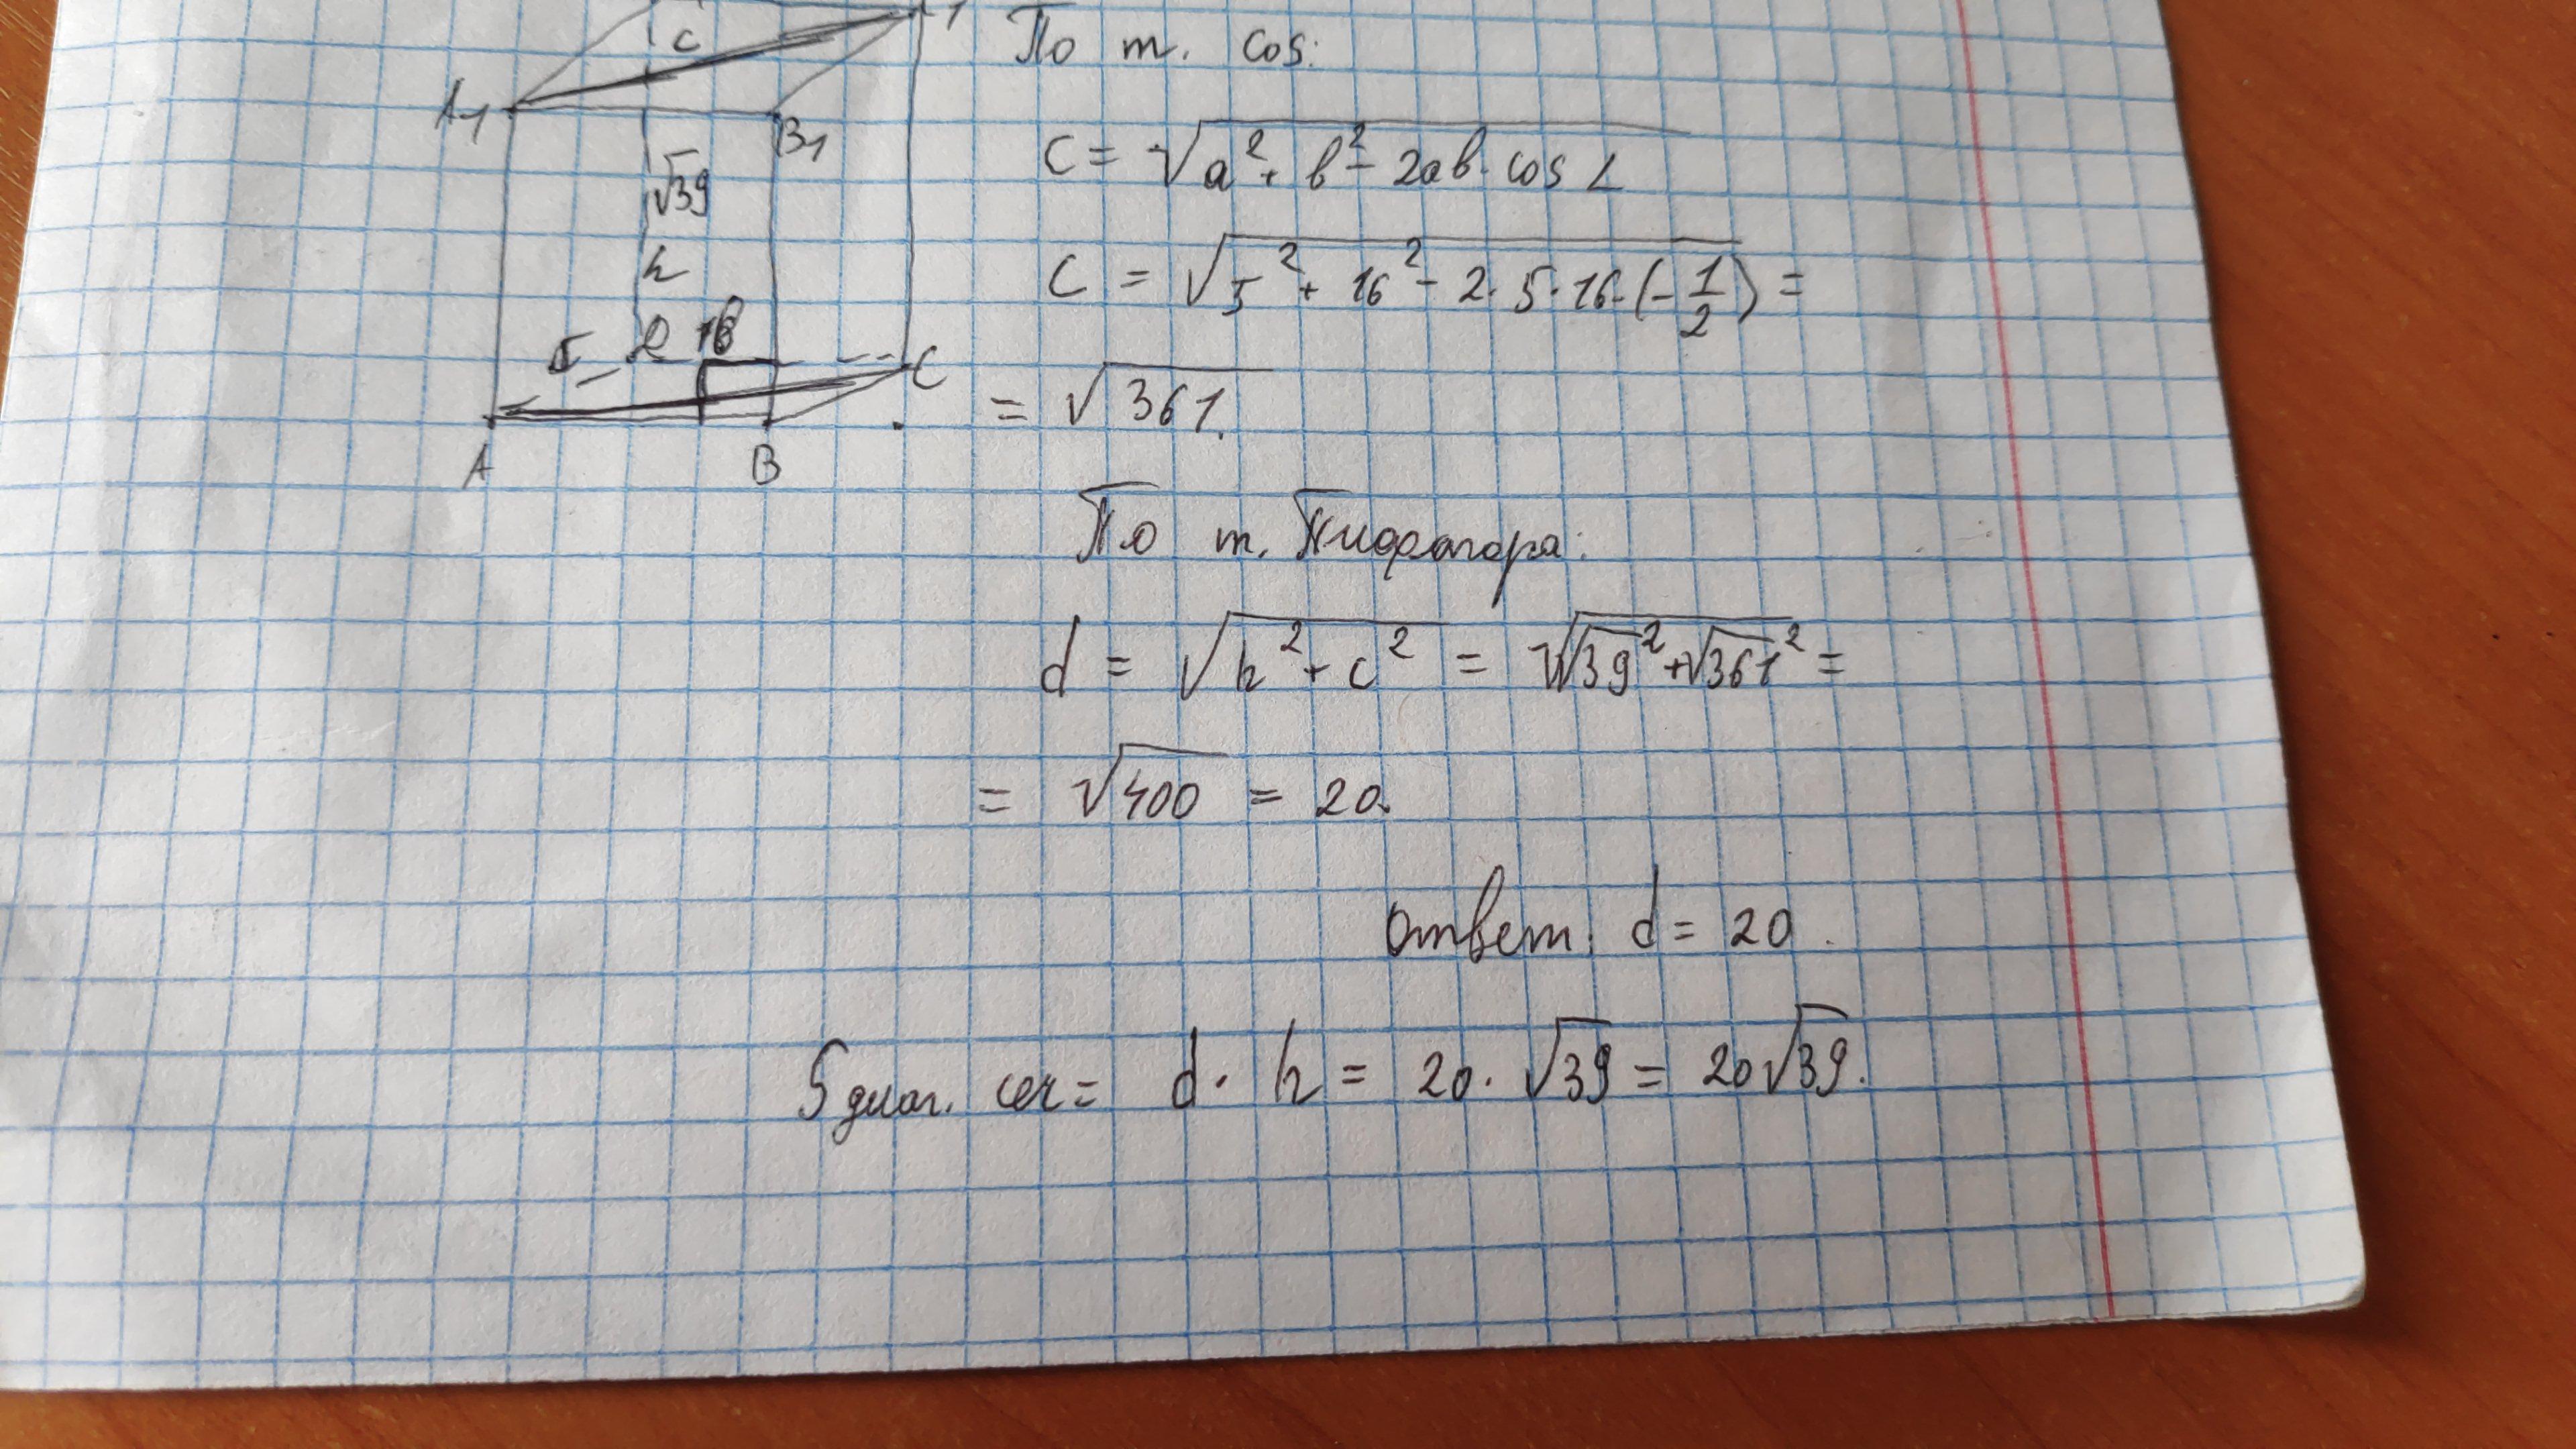 По т. cos:
A1
B1
c
√39
h
5
16
A
B
C
c = √a² + b² - 2ab · cos L
c = √5² + 16² - 2 · 5 · 16 · (-1/2) =
= √361.
По т. Пифагора:
d = √h² + c² = √√39² + √361² =
= √400 = 20.
ответ: d = 20.
S диаг. сеч = d · h = 20 · √39 = 20√39.